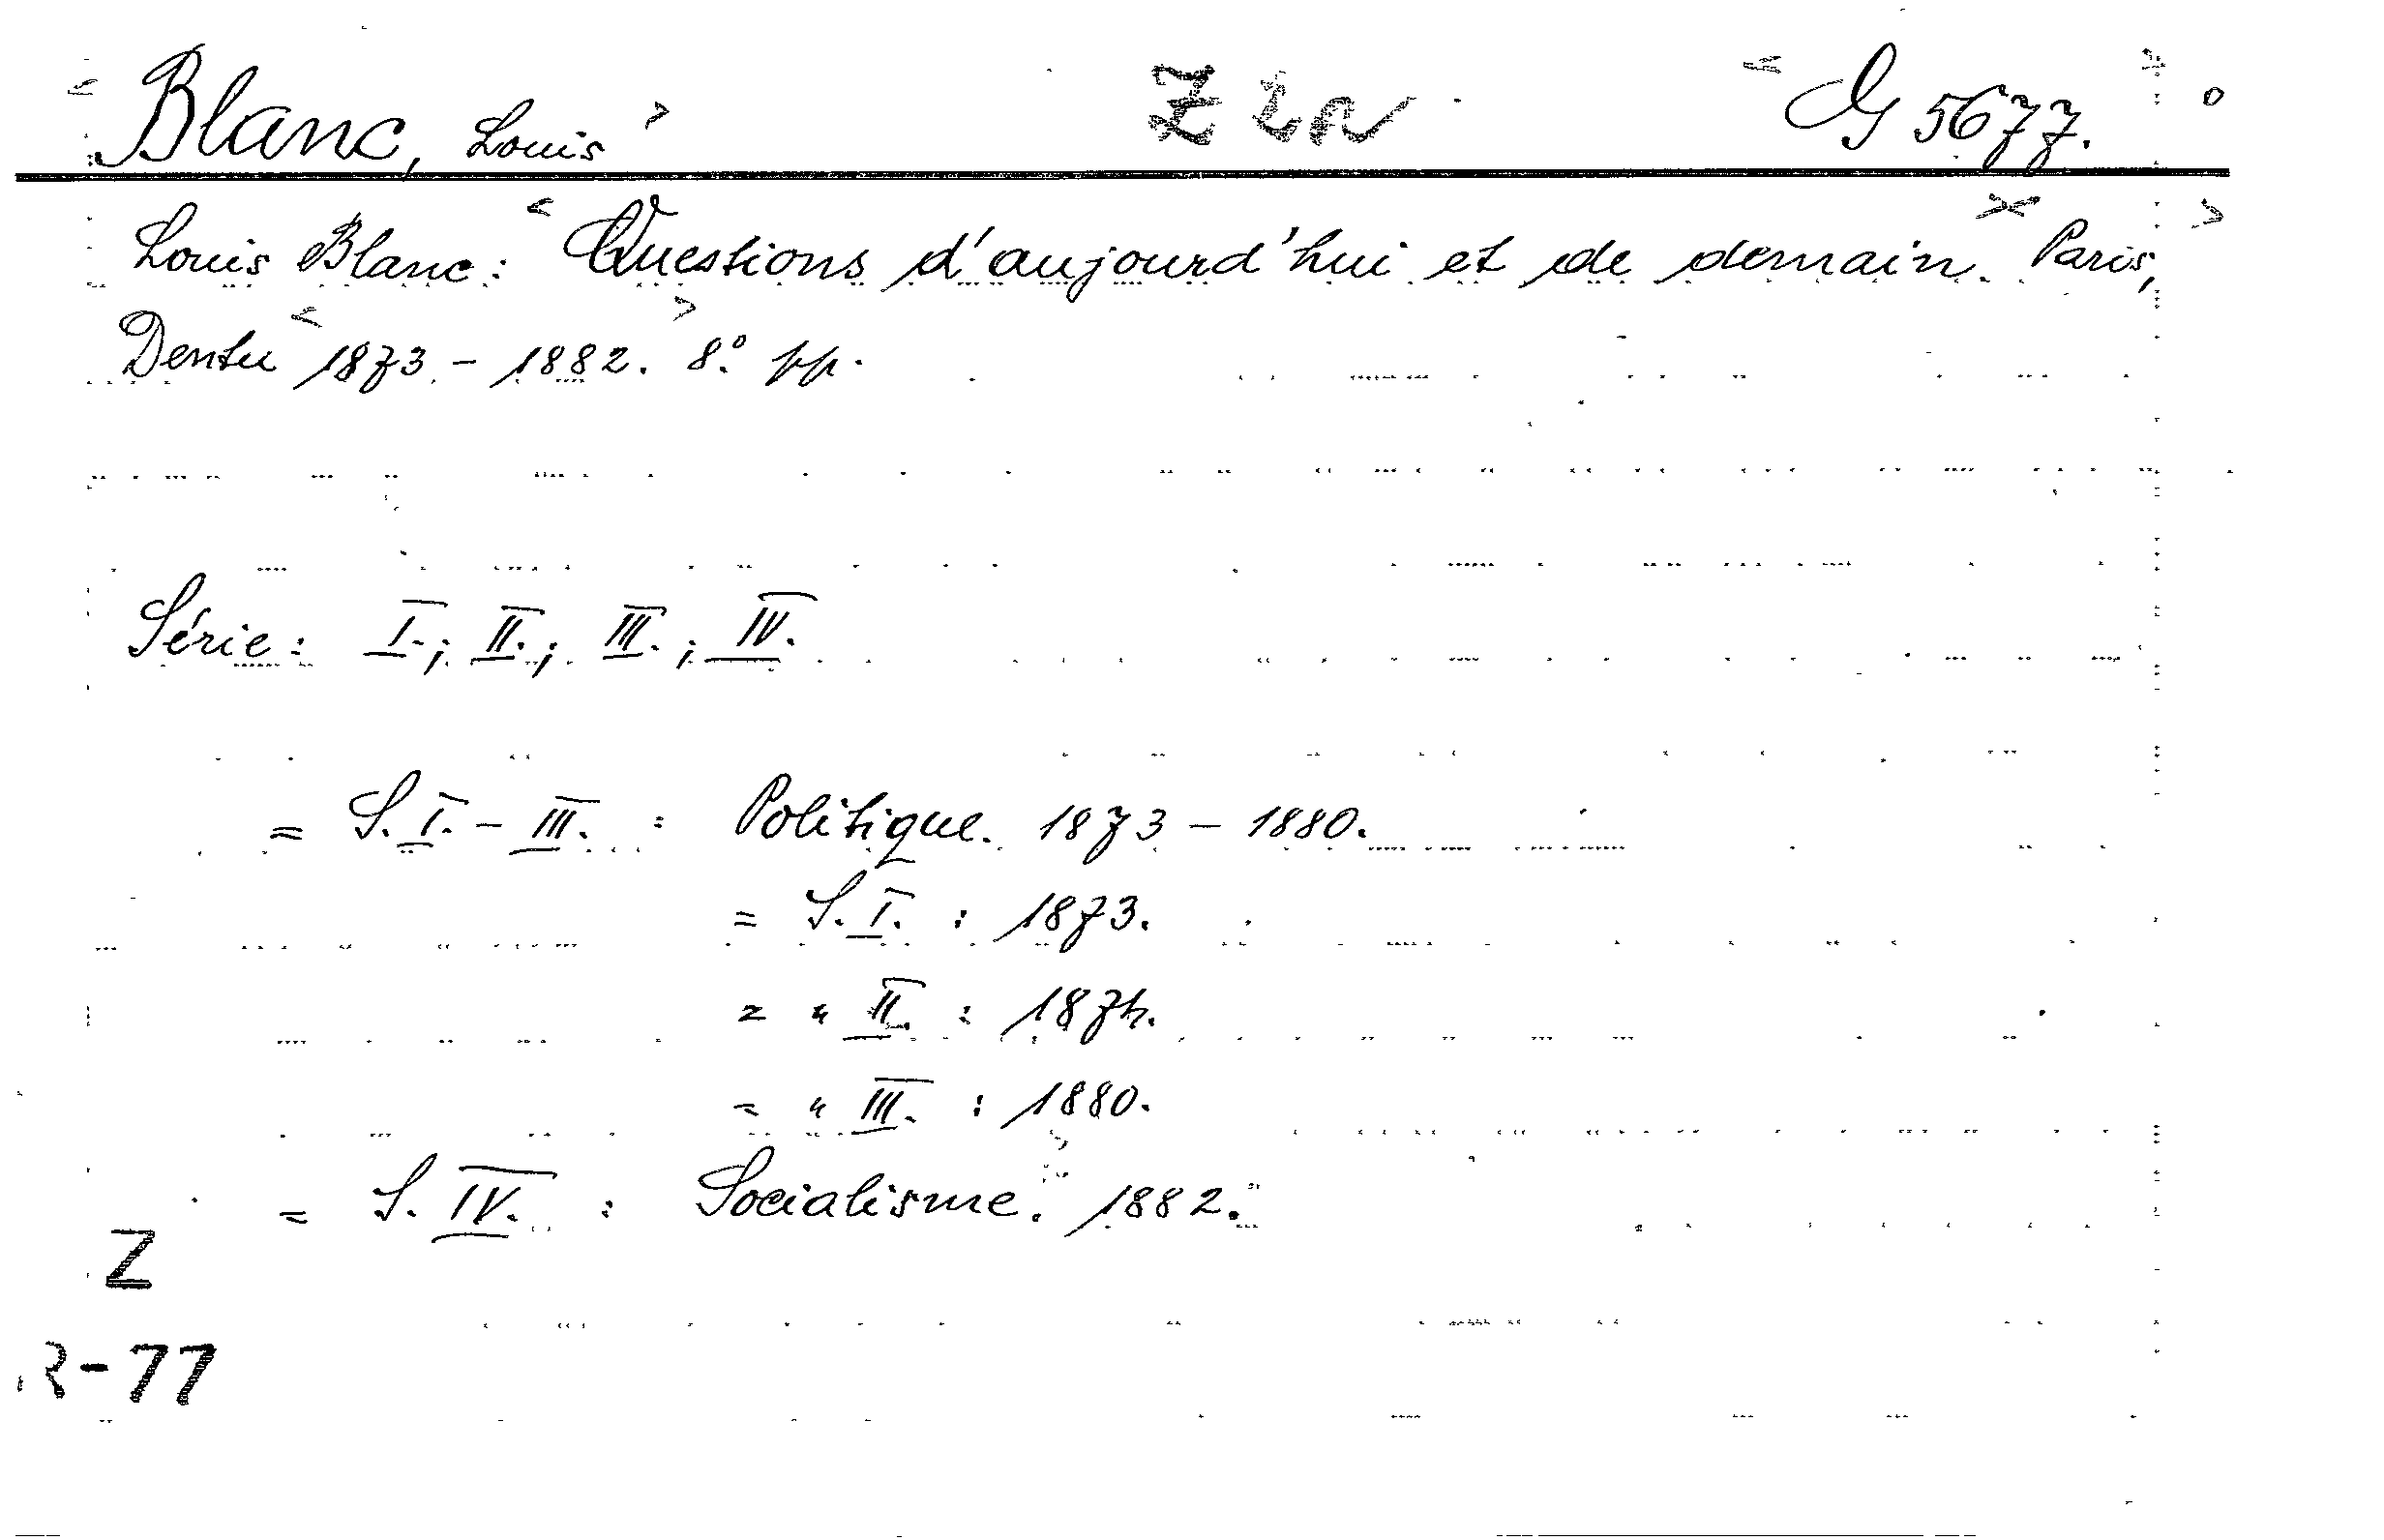 Blanc, Louis Z 2a G 5677.
Louis Blanc: Questions d'aujourd'hui et de demain. Paris,
Dentu 1873 - 1882. 8° pp.
Série: I.; II.; III.; IV.
= S. I. - III. : Politique. 1873 - 1880.
= S. I. : 1873.
= " II. : 1874.
= " III. : 1880.
= S. IV. : Socialisme. 1882.
Z
R-77